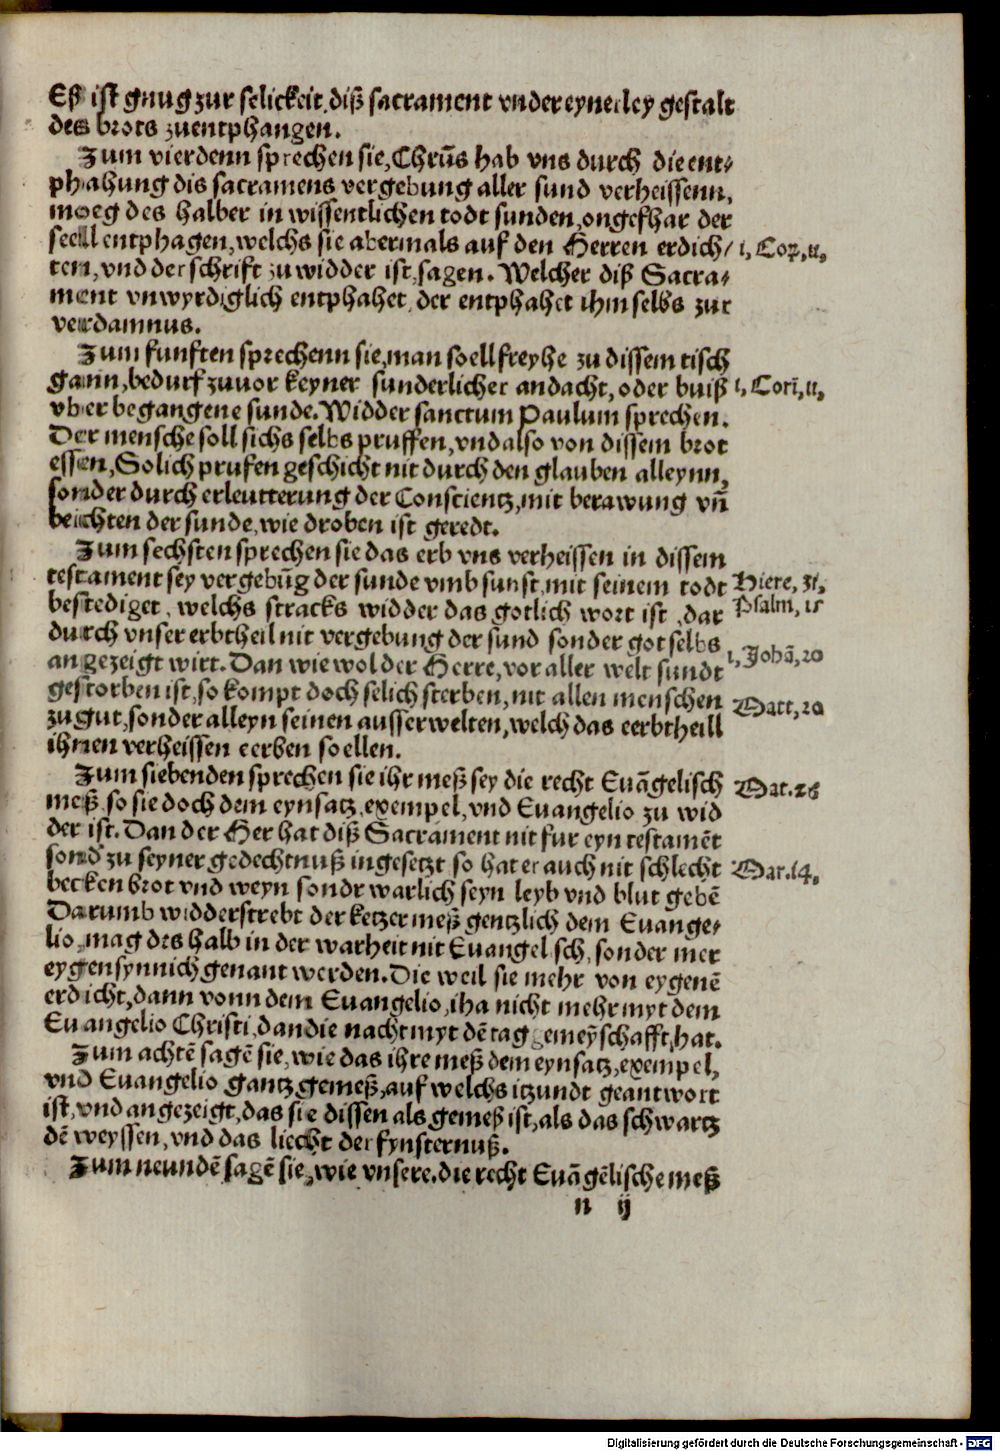 Eß ist gnug zur selickeit, diß sacrament vnder eynerley gestalt
des brots zuentphangen.
Zum vierdenn sprechen sie, Chrūs hab vns durch die ent⸗
phahung dis sacramens vergebung aller sund verheissenn,
moeg des halber in wissentlichen todt sunden, ongefhar der
seell entphagen, welchs sie abermals auf den Herren erdich⸗
ten, vnd der schrift zu widder ist, sagen. Welcher diß Sacra⸗
ment vnwyrdiglich entphahet, der entphahet ihm selbs zur
verdamnus.
1, Cor, 11,
Zum funften sprechenn sie, man soell freyhe zu dissem tisch
gann, bedurf zuuor keyner sunderlicher andacht, oder buiß
vber begangene sunde. Widder sanctum Paulum sprechen.
Der mensche soll sichs selbs pruffen, vnd also von dissem brot
essen, Solich prufen geschicht nit durch den glauben alleynn,
sonder durch erleutterung der Conscientz, mit berawung vn̄
beichten der sunde, wie droben ist geredt.
1, Corī, 11,
Zum sechsten sprechen sie das erb vns verheissen in dissem
testament sey vergebūg der sunde vmb sunst, mit seinem todt
bestediget, welchs stracks widder das gotlich wort ist, dar
durch vnser erbtheil nit vergebung der sund sonder got selbs
angezeigt wirt. Dan wie wol der Herre, vor aller welt sundt
gestorben ist, so kompt doch selich sterben, nit allen menschen
zu gut, sonder alleyn seinen ausserwelten, welch das eerbtheill
ihnen verheissen eerben soellen.
Hiere, 31,
Psalm, 15
1, Johā, 20
Matt, 20
Zum siebenden sprechen sie ihr meß sey die recht Euāgelisch
meß, so sie doch dem eynsatz, exempel, vnd Euangelio zu wid
der ist. Dan der Her hat diß Sacrament nit fur eyn testamēt
sond' zu seyner gedechtnuß ingesetzt so hat er auch nit schlecht
becken brot vnd weyn sondr warlich seyn leyb vnd blut gebē
Darumb widderstrebt der ketzer meß gentzlich dem Euange⸗
lio, mag des halb in der warheit nit Euangelsch, sonder mer
eygensynnich genant werden. Die weil sie mehr von eygenē
erdicht, dann vonn dem Euangelio, iha nicht mehr myt dem
Euangelio Christi, dan die nacht myt dē tag gemeyschafft, hat.
Mat. 26
Mar. 14,
Zum achtē sagē sie, wie das ihre meß dem eynsatz, exempel,
vnd Euangelio gantz gemeß, auf welchs itzundt geantwort
ist, vnd angezeigt, das sie dissen als gemeß ist, als das schwartz
dē weyssen, vnd das liecht der fynsternuß.
Zum neundē sagē sie, wie vnsere, die recht Euāgēlische meß
n ij
Digitalisierung gefördert durch die Deutsche Forschungsgemeinschaft - DFG